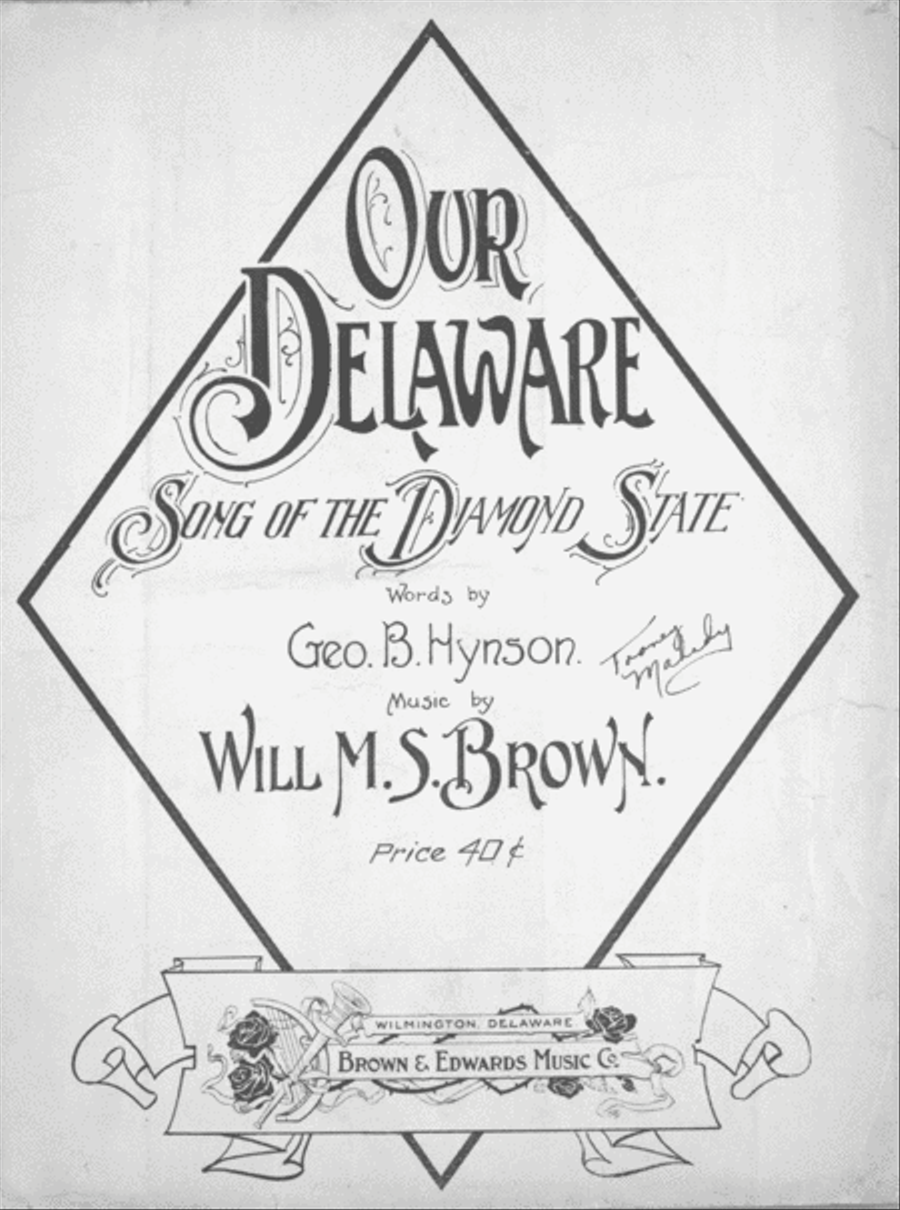 OUR
DELAWARE
SONG OF THE DIAMOND STATE
Words by
Geo. B. Hynson.
Music by
WILL M. S. BROWN.
Price 40 ¢
WILMINGTON, DELAWARE.
BROWN & EDWARDS MUSIC CO.